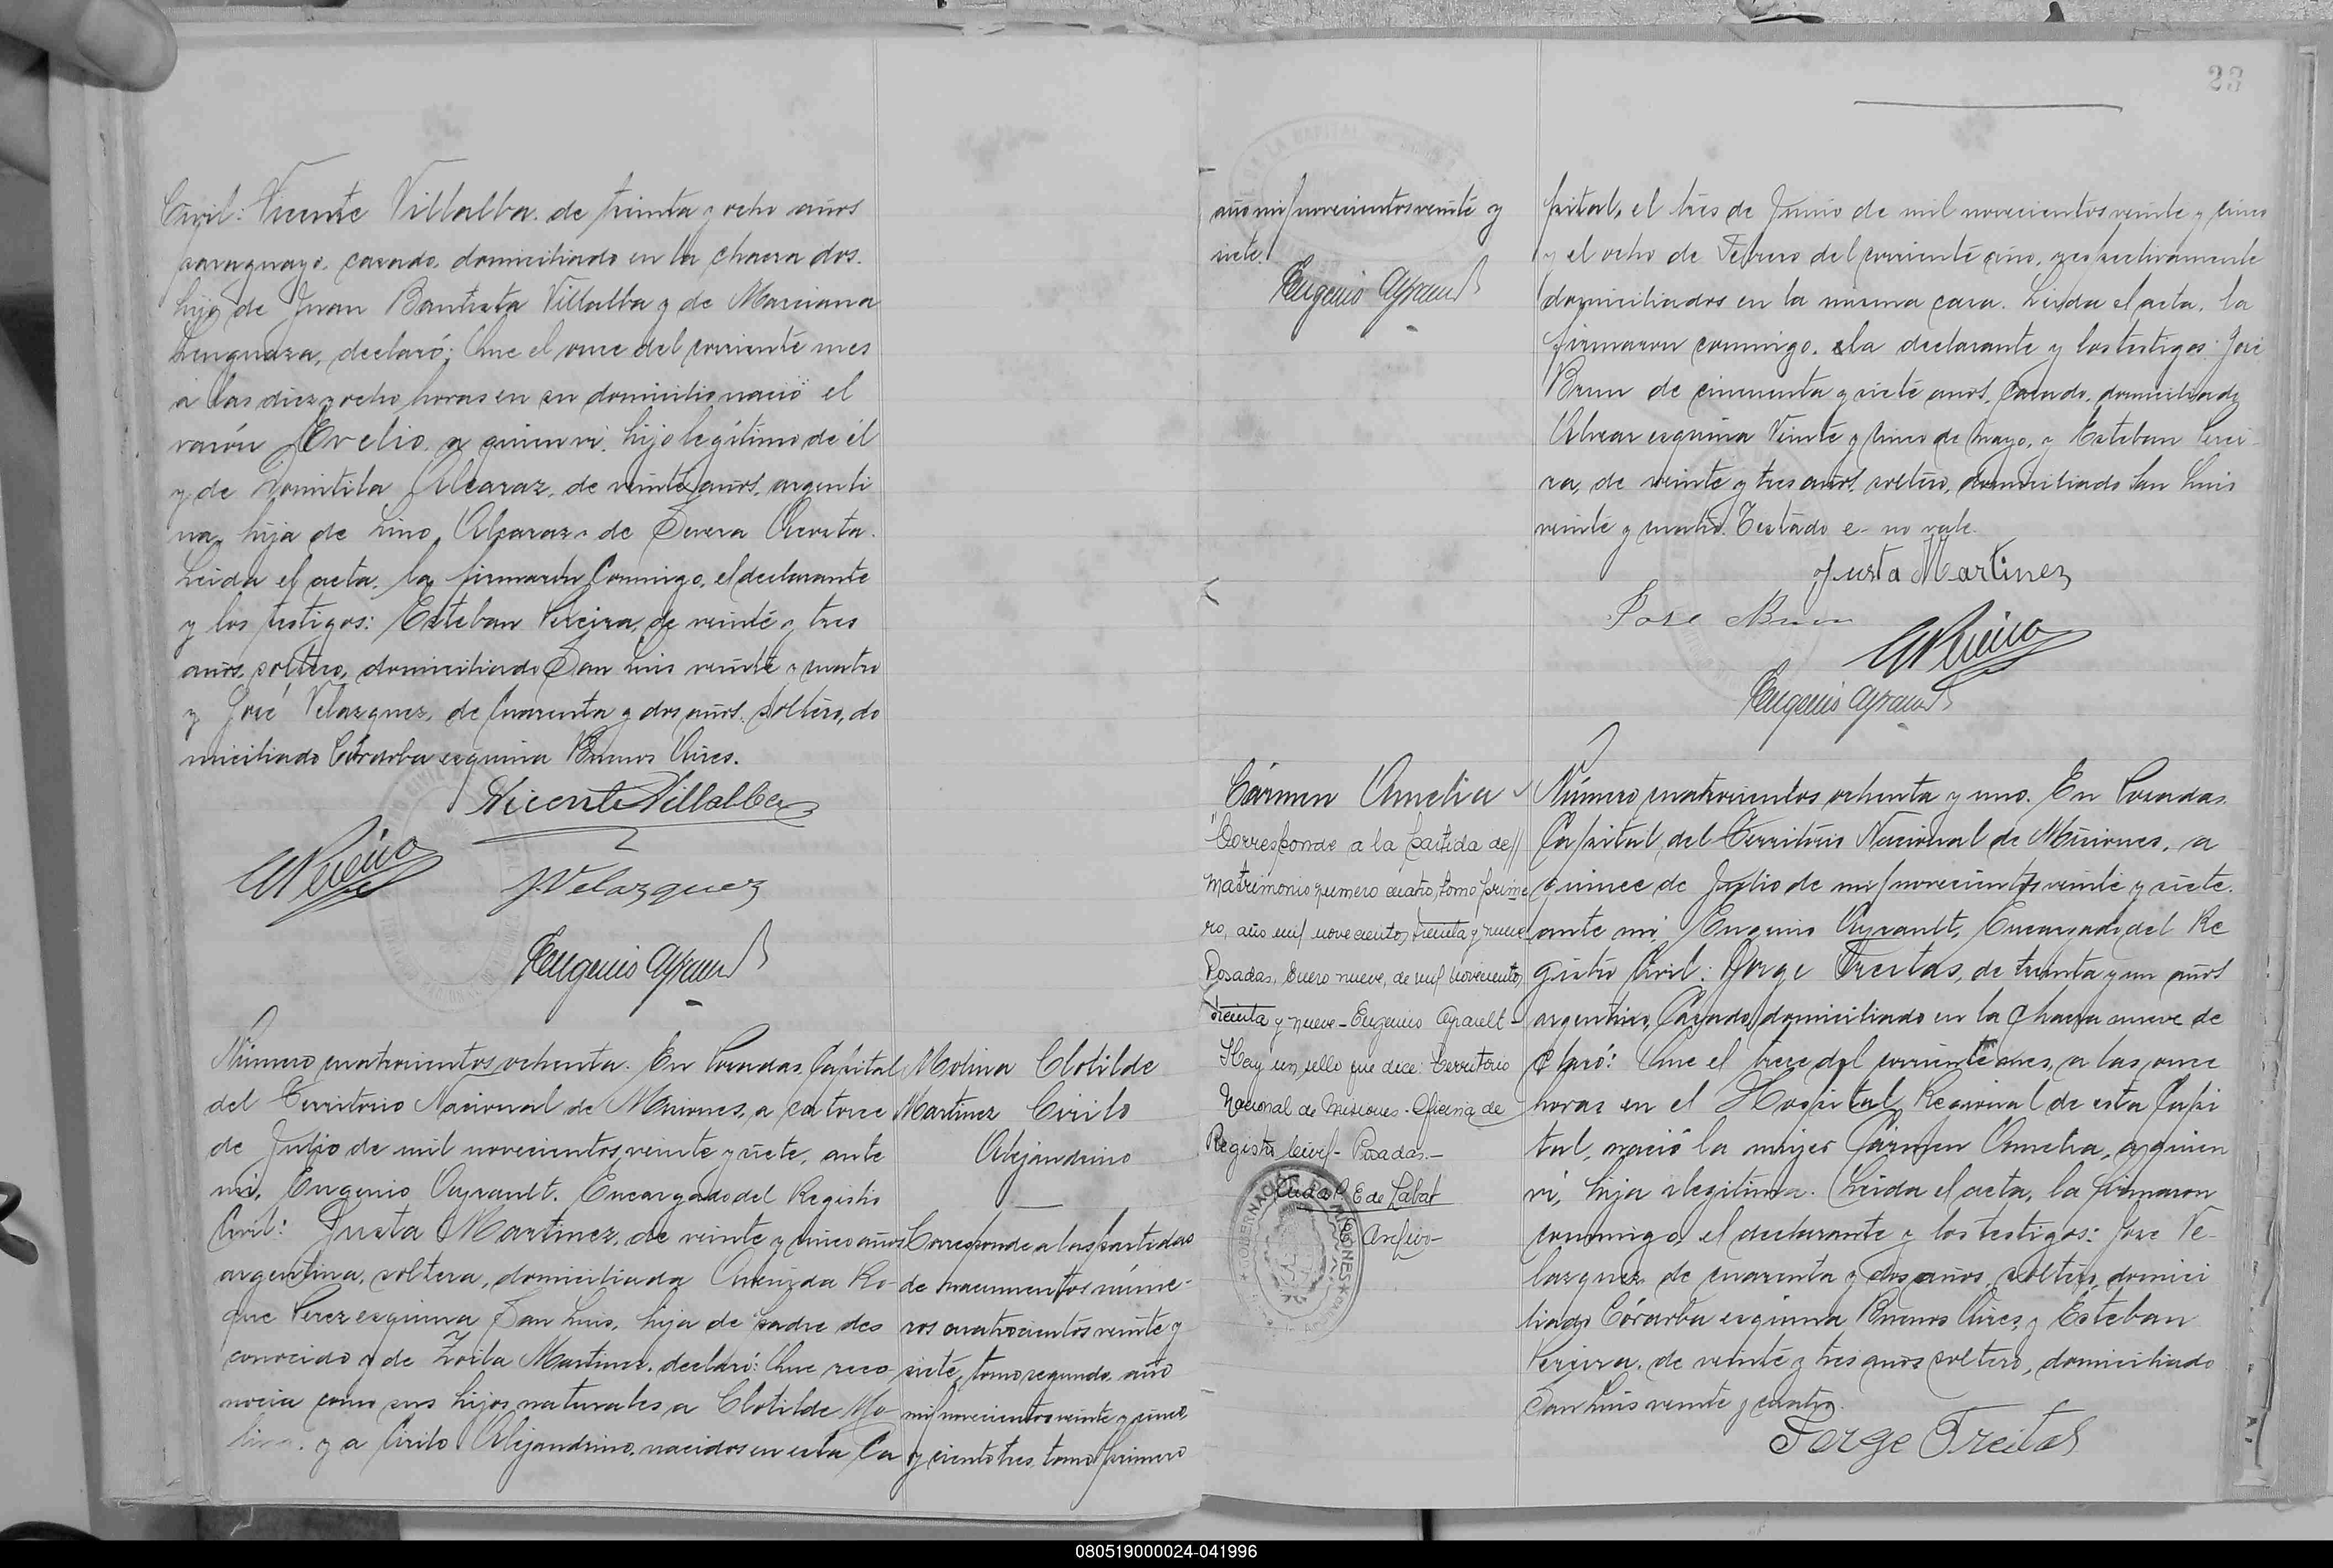 Civil: Vicente Villalba. de treinta y ocho años
paraguayo. casado. domiciliado en la chacra dos.
hijo de Juan Bautista Villalba y de Marciana
declaró: Que el once del corriente mes
a las diez y ocho horas en su domicilio nació el
varón Evelio. a quien vi. hijo legítimo de él
y de Domitila Alcaraz, de veinte años, argenti
na, hija de Lino Alcaraz y de Severa Acosta.
Leida el acta, la firmaron conmigo, el declarante
y los testigos: Esteban Pereira, de veinte y tres
años, soltero, domiciliado San Luis veinte y cuatro
y José Velazquez, de cuarenta y dos años, soltero, do
miciliado Córdoba esquina Buenos Aires.
Vicente Villalba
EPereira
J. Velazquez
Eugenio Ayrault
Número cuatrocientos ochenta. En Posadas, Capital
del Territorio Nacional de Misiones, a catorce
de Julio de mil novecientos veinte y siete, ante
mi, Eugenio Ayrault. Encargado del Registro
Civil: Justa Martinez, de veinte y cinco años
argentina, soltera, domiciliada Avenida Ro-
que Perez esquina San Luis, hija de padre des
conocido y de Zoila Martinez, declaró: Que reco
nocia como sus hijos naturales a Clotilde Mo-
lina. y a Cirilo Alejandrino, nacidos en esta Ca
Molina Clotilde
Martinez Cirilo
Alejandrino
Corresponde a las partidas
de nacimientos núme-
ros cuatrocientos veinte y
siete, tomo segundo, año
mil novecientos veinte y cinco,
y ciento tres, tomo primero
23
año mil novecientos veinte y
siete.
Eugenio Ayrault
pital, el tres de Junio de mil novecientos veinte y cinco
y el ocho de Febrero del corriente año, respectivamente
domiciliados en la misma casa. Leida el acta, la
firmaron conmigo, ela declarante y los testigos: José
Brun de cincuenta y siete años, casado, domiciliado
Alvear esquina Veinte y cinco de Mayo, y Esteban Perei-
ra, de veinte y tres años, soltero, domiciliado San Luis
veinte y cuatro. Testado e- no vale.
Justa Martinez
Jose Brun
EPereira
Eugenio Ayrault
Cármen Amelia
"Corresponde a la partida de//
matrimonio numero cuatro, tomo prime
ro, año mil novecientos treinta y nueve
Posadas, Enero nueve, de mil novecientos
treinta y nueve - Eugenio Ayrault -
Hay un sello que dice: Territorio
Nacional de Misiones - Oficina de
Registro Civil - Posadas -
E de Labat
Archivo -
GOBERNACION DE MISIONES
Número cuatrocientos ochenta y uno. En Posadas
Capital, del Territorio Nacional de Misiones, a
quince de Julio de mil novecientos veinte y siete.
ante mi, Eugenio Ayrault, Encargado del Re
gistro Civil: Jorge Freitas, de treinta y un años
argentino, casado, domiciliado en la Chacra nueve de
claró: Que el trece del corriente mes, a las once
horas en el Hospital Regional de esta Capi
tal, nació la mujer Cármen Amelia, a quien
vi, hija ilegitima. Leida el acta, la firmaron
conmigo, el declarante y los testigos: Jose Ve-
lazquez de cuarenta y dos años, soltero, domici
liado Córdoba esquina Buenos Aires, y Esteban
Pereira. de veinte y tres años soltero, domiciliado
San Luis veinte y cuatro.
Jorge Freitas
080519000024-041996